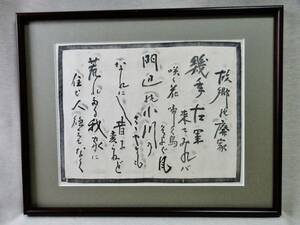 故郷の廃家
幾年故里
来てみれば
咲く花鳴く鳥
そよぐ風
門辺の小川の
なれにし昔に
変らねど
荒れたる我家に
住む人絶えてなく